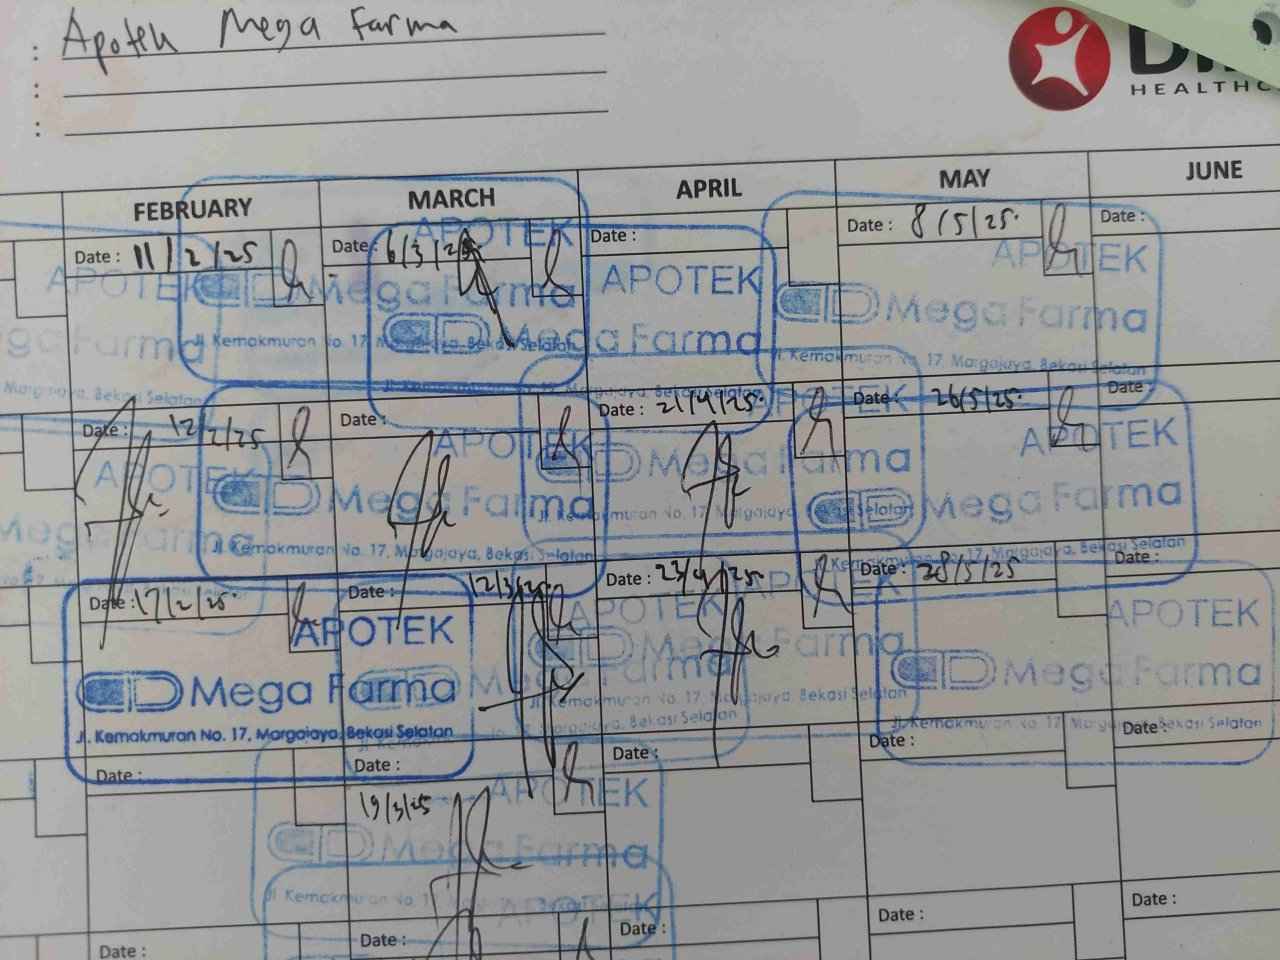 : Apotek Mega Farma
:
:
HEALTHC
FEBRUARY MARCH APRIL MAY JUNE
Date : 11/2/25 Date : 6/3/25 Date : Date : 8/5/25 Date :
APOTEK APOTEK APOTEK APOTEK
Mega Farma Mega Farma Mega Farma
ga Farma Mega Farma
Jl. Kemakmuran No. 17, Margajaya, Bekasi Selatan
Jl. Kemakmuran No. 17, Margajaya, Bekasi Selatan
Margajaya, Bekasi Selatan
Date : 12/2/25 Date : Date : 21/4/25 Date : 26/5/25 Date :
APOTEK APOTEK APOTEK APOTEK
Mega Farma Mega Farma Mega Farma
Mega Farma
Jl. Kemakmuran No. 17, Margajaya, Bekasi Selatan
Jl. Kemakmuran No. 17, Margajaya, Bekasi Selatan
Jl. Kemakmuran No. 17, Margajaya, Bekasi Selatan
Date : 17/2/25 Date : 12/3/25 Date : 23/4/25 Date : 28/5/25 Date :
APOTEK APOTEK APOTEK APOTEK
Mega Farma Mega Farma Mega Farma Mega Farma
Jl. Kemakmuran No. 17, Margajaya, Bekasi Selatan
Jl. Kemakmuran No. 17, Margajaya, Bekasi Selatan
Jl. Kemakmuran No. 17, Margajaya, Bekasi Selatan
Margajaya, Bekasi Selatan
Date : Date : Date : Date : Date :
19/3/25
APOTEK
Mega Farma
Jl. Kemakmuran No. 17
APOTEK
Date : Date : Date : Date : Date :